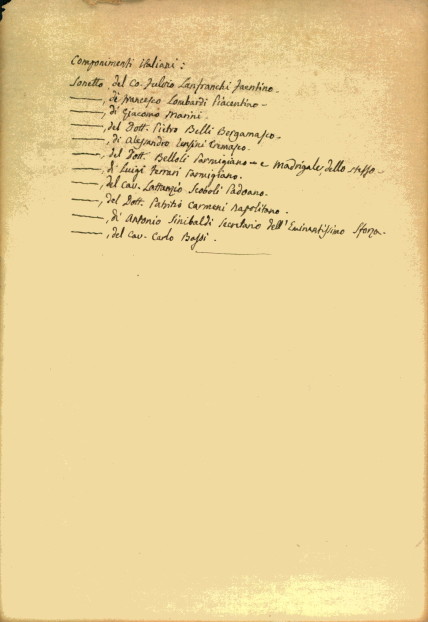 Componimenti italiani:
Sonetto, del Co. Fulvio Lanfranchi Faentino.
———, di Francesco Lombardi Piacentino.
———, di Giacomo Marini.
———, del Dott. Pietro Belli Bergamasco.
———, di Alessandro Cremasco.
———, del Dott. Belloli Parmigiano — e Madrigale dello stesso.
———, di Luigi Ferrari Parmigiano.
———, del Cav. Lattanzio Padoano.
———, del Dott. Patritio Carmeni Napolitano.
———, di Antonio Sinibaldi Secretario dell'Eminentissimo Sforza.
———, del Cav. Carlo Bossi.